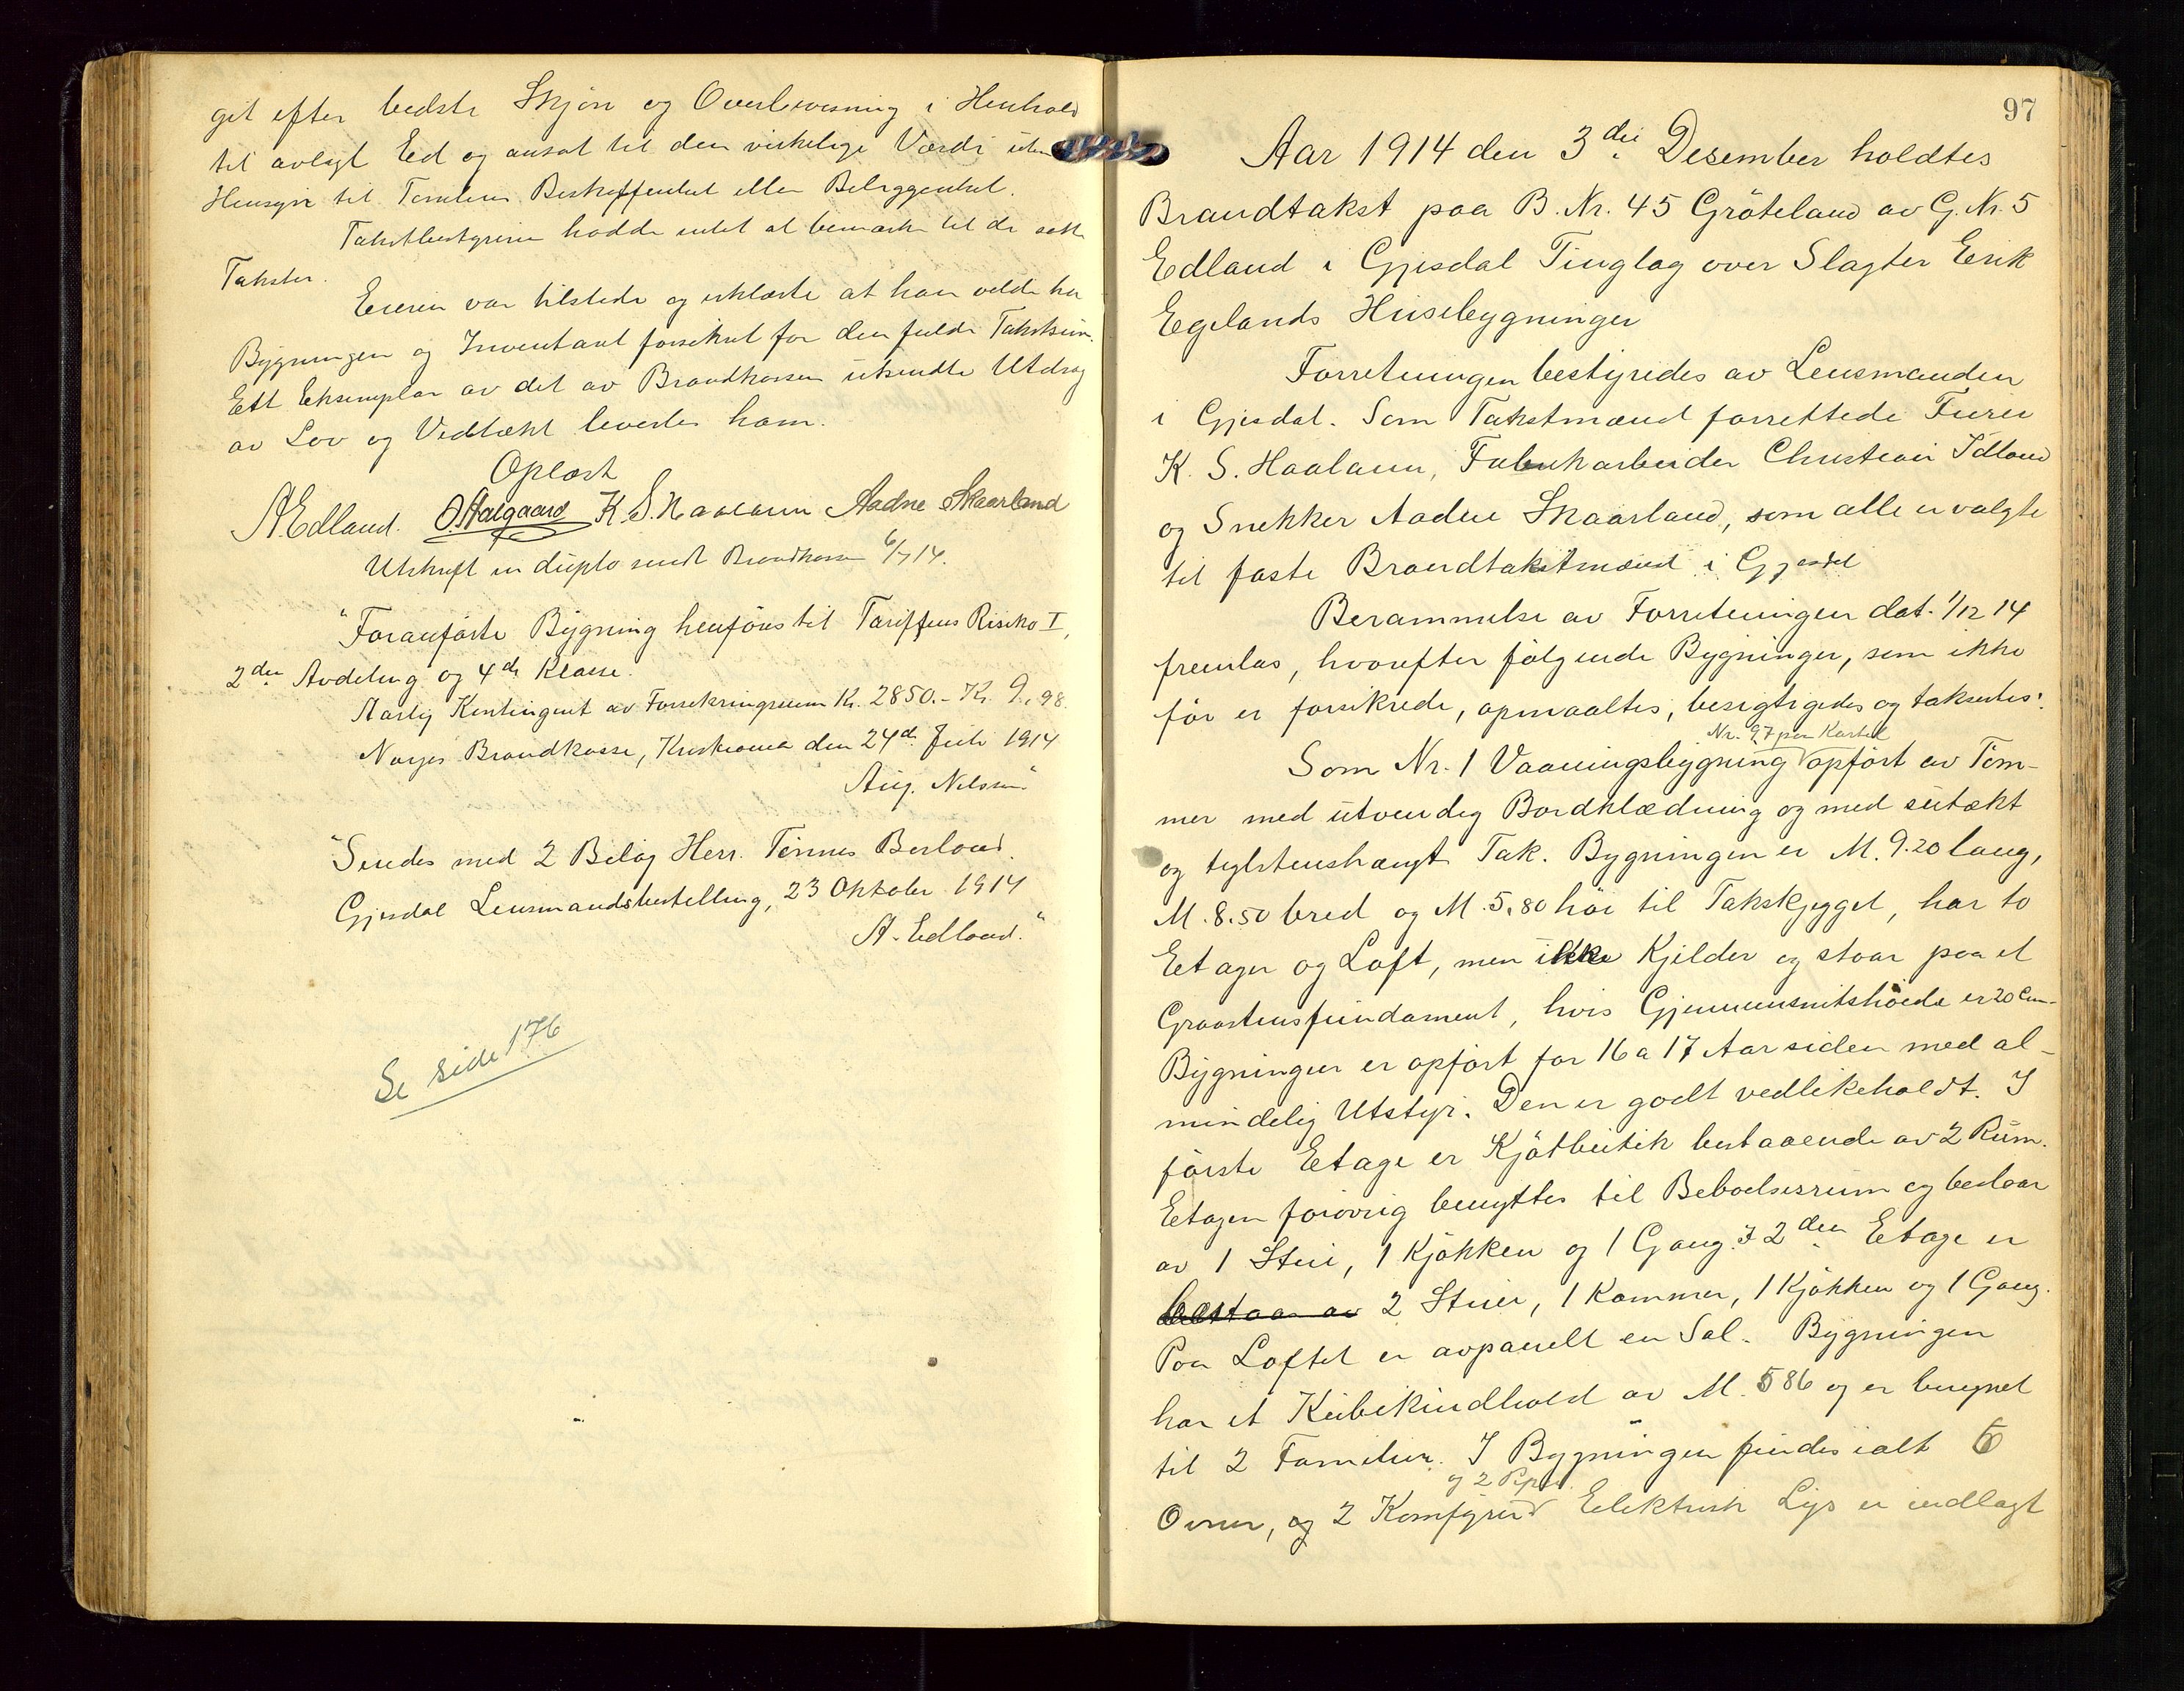 git efter bedste Skjøn og Overbevisning i Henhold
til avlagt Ed og ansat til den virkelige Værdi uten
Hensyn til Tomtens Beskaffenhet eller Beliggenhet.
Takstbestyreren hadde intet at bemærke til de satte
Takster.
Eieren var tilstede og erklærte at han vilde ha
Bygningen og Inventaret forsikret for den fulde Takstsum.
Ett Eksemplar av det av Brandkassen utsendte Utdrag
av Lov og Vedtækt levertes ham.
Oplæst
A. Edland. O. Aalgaard K. S. Haaland Aadne Skaarland
Utskrift in duplo sendt Brandkassen 6/7 14.
"Foranførte Bygning henføres til Tariffens Risiko I,
2den Avdeling og 4de Klasse.
Aarlig Kontingent av Forsikringssum Kr. 2850.- Kr. 9.98.
Norges Brandkasse, Kristiania den 24de Juli 1914
Aug. Nilssen"
"Sendes med 2 Bilag Herr Tønnes Berland.
Gjesdal Lensmandsbestilling, 23 Oktober 1914
A. Edland."
Se side 176
97
Aar 1914 den 3die Desember holdtes
Brandtakst paa B. Nr. 45 Gröteland av G. Nr. 5
Edland i Gjesdal Tinglag over Slagter Eirik
Egelands Husebygninger
Forretningen bestyredes av Lensmanden
i Gjesdal. Som Takstmænd forrettede Furer
K. S. Haaland, Fabrikarbeider Christian Idland
og Snekker Aadne Skaarland, som alle er valgte
til faste Brandtakstmænd i Gjesdal
Berammelse av Forretningen dat. 1/12 14
fremlas, hvorefter følgende Bygninger, som ikke
før er forsikrede, opmaaltes, besigtigedes og takseredes:
Nr. 97 paa Kartet
Som Nr. 1 Vaaningsbygning opført av Töm-
mer med utvendig Bordklædning og med sutækt
og teglstenshængt Tak. Bygningen er M. 9.20 lang,
M. 8.50 bred og M. 5.80 høi til Takskjegget, har to
Etager og Loft, men ikke Kjelder og staar paa et
Graastensfundament, hvis Gjennemsnitshøide er 20 Cm.
Bygningen er opført for 16 a 17 Aar siden med al-
mindelig Utstyr. Den er godt vedlikeholdt. I
første Etage er Kjøtbutik bestaaende av 2 Rum.
Etagen forøvrig benyttes til Beboelsesrum og bestaar
av 1 Stue, 1 Kjøkken og 1 Gang. I 2den Etage er
bestaar av 2 Stuer, 1 Kammer, 1 Kjøkken og 1 Gang.
Paa Loftet er avpanelt en Sal. Bygningen
har et Kubikindhold av M. 586 og er beregnet
til 2 Familier. I Bygningen findes ialt 6
og 2 Piper.
Ovner, og 2 Komfyrer Elektrisk Lys er indlagt